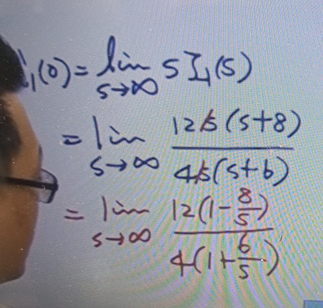 i₁(0) = lim s→∞ s I₁(s)
= lim s→∞ 12s(s+8) / 4s(s+6)
= lim s→∞ 12(1-8/s) / 4(1+6/s)